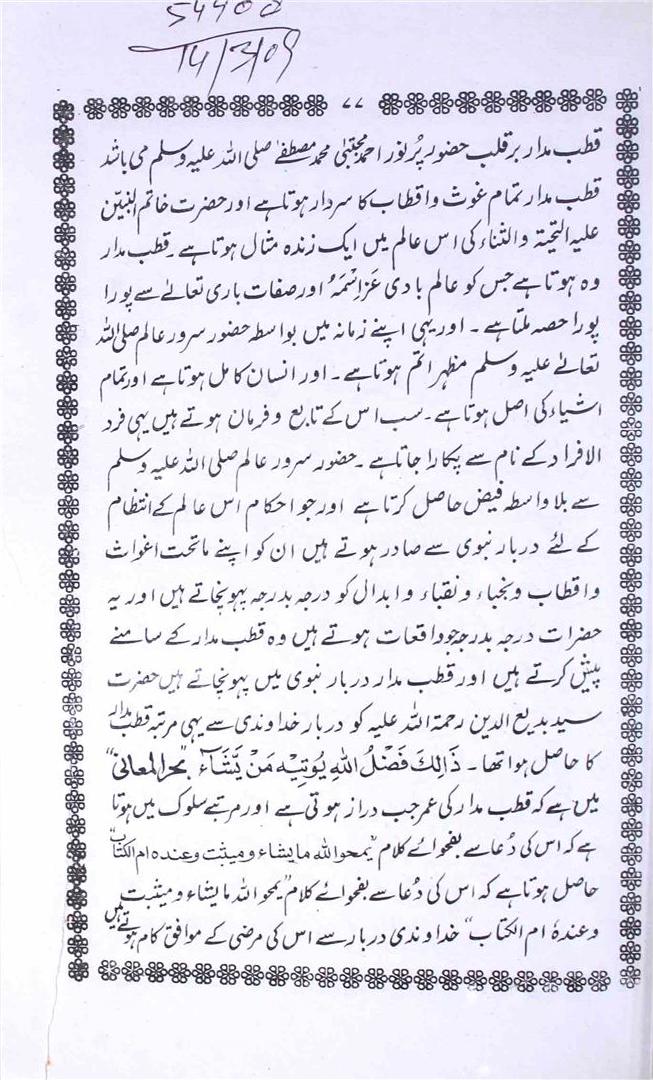 54400
14/3/09
۷۷
قطب مدار بر قلب حضور پُر نور احمد مجتبیٰ محمد مصطفےٰ صلی اللہ علیہ وسلم می باشد
قطب مدار تمام غوث و اقطاب کا سردار ہوتا ہے اور حضرت خاتم النبیّن
علیہ التحیۃ والثناء کی اس عالم میں ایک زندہ مثال ہوتا ہے ۔ قطب مدار
وہ ہوتا ہے جس کو عالم بادی عَزَّاِسْمَہٗ اور صفات باری تعالےٰ سے پورا
پورا حصہ ملتا ہے ۔ اور یہی اپنے زمانہ میں بواسطہ حضور سرور عالم صلی اللہ
تعالےٰ علیہ وسلم مظہر اتم ہوتا ہے ۔ اور انسان کامل ہوتا ہے اور تمام
اشیاء کی اصل ہوتا ہے ۔ سب اس کے تابع و فرمان ہوتے ہیں یہی فرد
الافراد کے نام سے پکارا جاتا ہے ۔ حضور سرور عالم صلی اللہ علیہ وسلم
سے بلا واسطہ فیض حاصل کرتا ہے اور جو احکام اس عالم کے انتظام
کے لئے دربار نبوی سے صادر ہوتے ہیں ان کو اپنے ماتحت اغواث
و اقطاب و نجباء و نقباء و ابدال کو درجہ بدرجہ پہونچاتے ہیں اور یہ
حضرات درجہ بدرجہ جو واقعات ہوتے ہیں وہ قطب مدار کے سامنے
پیش کرتے ہیں اور قطب مدار دربار نبوی میں پہونچاتے ہیں حضرت
سید بدیع الدین رحمۃ اللہ علیہ کو دربار خداوندی سے یہی مرتبہ قطب مدار
کا حاصل ہوا تھا ۔ ذَالِكَ فَضْلُ اللهِ يُوتِيْه مَنْ يَّشَآء ”بحر المعانی“
میں ہے کہ قطب مدار کی عمر جب دراز ہوتی ہے اور مرتبے سلوک میں ہوتا
ہے کہ اس کی دُعا سے بفحوائے کلام ”یمحو اللہ ما یشاء و میثبت وعندہ ام الکتاب“
حاصل ہوتا ہے کہ اس کی دُعا سے بفحوائے کلام ”یمحو اللہ ما یشاء و میثبت
وعندہٗ ام الکتاب“ خداوندی دربار سے اس کی مرضی کے موافق کام ہوتے ہیں